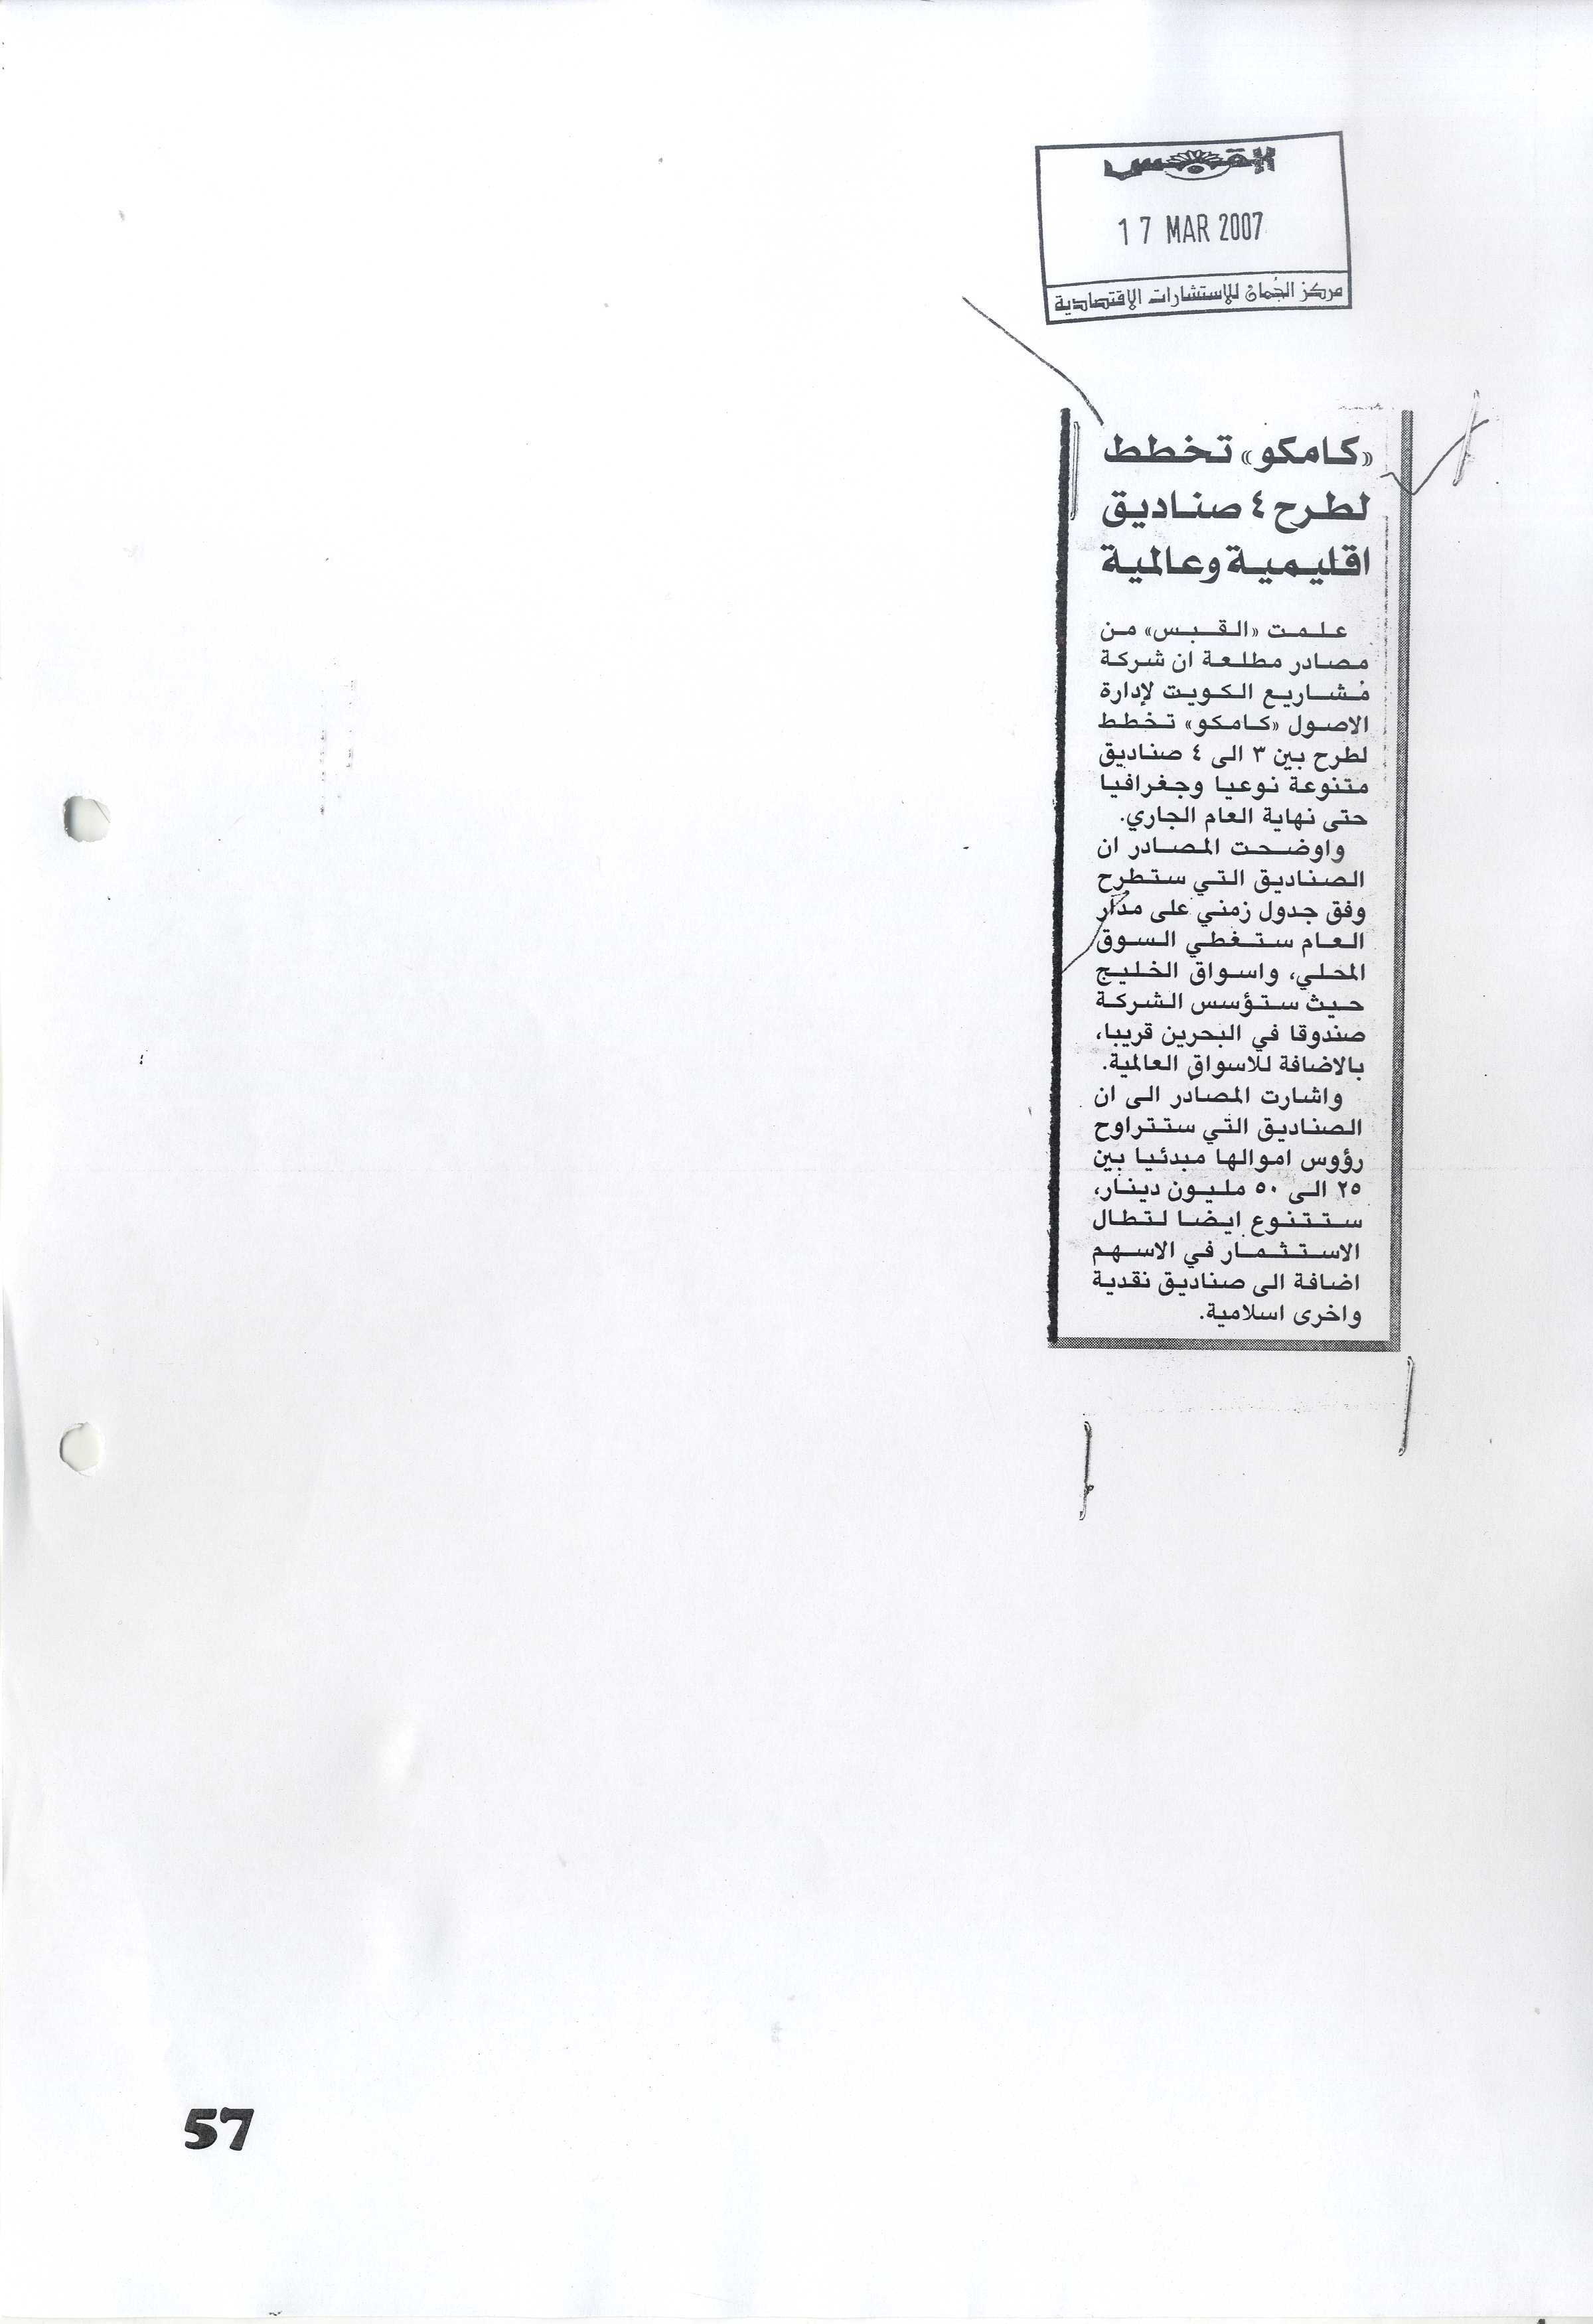 القبس
17 MAR 2007
مركز الجُمان للإستشارات الإقتصادية
«كامكو» تخطط
لطرح ٤ صناديق
اقليمية وعالمية
علمت «القبس» من
مصادر مطلعة ان شركة
مشاريع الكويت لإدارة
الاصول «كامكو» تخطط
لطرح بين ٣ الى ٤ صناديق
متنوعة نوعيا وجغرافيا
حتى نهاية العام الجاري.
واوضحت المصادر ان
الصناديق التي ستطرح
وفق جدول زمني على مدار
العام ستغطي السوق
المحلي، واسواق الخليج
حيث ستؤسس الشركة
صندوقا في البحرين قريبا،
بالاضافة للاسواق العالمية.
واشارت المصادر الى ان
الصناديق التي ستتراوح
رؤوس اموالها مبدئيا بين
٢٥ الى ٥٠ مليون دينار،
ستتنوع ايضا لتطال
الاستثمار في الاسهم
اضافة الى صناديق نقدية
واخرى اسلامية.
57